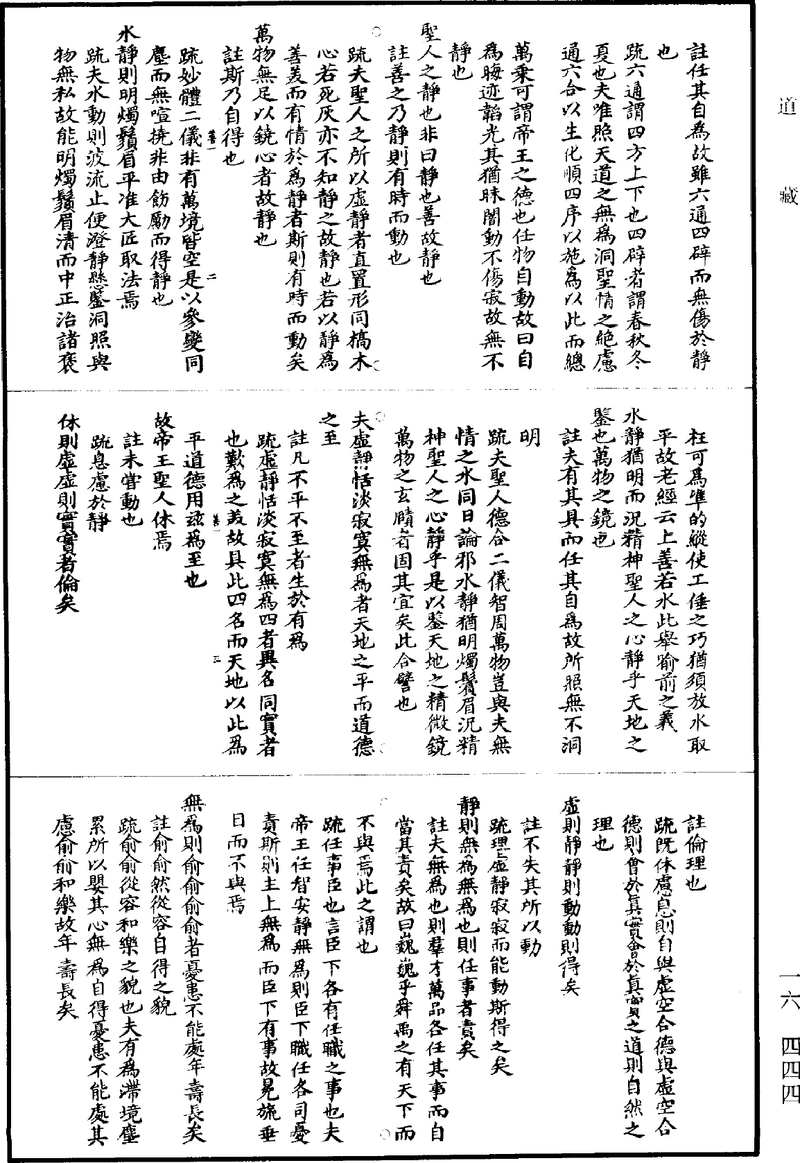 道藏
註任其自爲故雖六通四辟而無傷於靜
也
疏六通謂四方上下也四辟者謂春秋冬
夏也夫唯照天道之無爲洞聖情之絕慮
通六合以生化順四序以施爲以此而總
萬乘可謂帝王之德也任物自動故曰自
爲晦迹韜光其猶昧闇動不傷寂故無不
靜也
聖人之靜也非曰靜也善故靜也
註善之乃靜則有時而動也
疏夫聖人之所以虛靜者直置形同槁木
心若死灰亦不知靜之故靜也若以靜爲
善美而有情於爲靜者斯則有時而動矣
萬物無足以鐃心者故靜也
註斯乃自得也
疏妙體二儀非有萬境皆空是以參變同
塵而無喧撓非由飭勵而得靜也
水靜則明燭鬚眉平准大匠取法焉
疏夫水動則波流止便澄靜懸鑒洞照與
物無私故能明燭鬚眉清而中正治諸褒
枉可爲準的縱使工倕之巧猶須放水取
平故老經云上善若水此舉喻前之義
水靜猶明而況精神聖人之心靜乎天地之
鑒也萬物之鏡也
註夫有其具而任其自爲故所照無不洞
明
疏夫聖人德合二儀智周萬物豈與夫無
情之水同日論邪水靜猶明燭鬚眉況精
神聖人之心靜乎是以鑒天地之精微鏡
萬物之玄賾者固其宜矣此合譬也
夫虛靜恬淡寂寞無爲者天地之平而道德
之至
註凡不平不至者生於有爲
疏虛靜恬淡寂寞無爲四者異名同實者
也歎爲之美故具此四名而天地以此爲
平道德用玆爲至也
故帝王聖人休焉
註未嘗動也
疏息慮於靜
休則虛虛則實實者倫矣
註倫理也
疏旣休慮息則自與虛空合德與虛空合
德則會於眞實會於眞實之道則自然之
理也
虛則靜靜則動動則得矣
註不失其所以動
疏理虛靜寂寂而能動斯得之矣
靜則無爲無爲也則任事者責矣
註夫無爲也則羣才萬品各任其事而自
當其責矣故曰巍巍乎舜禹之有天下而
不與焉此之謂也
疏任事臣也言臣下各有任職之事也夫
帝王任智安靜無爲則臣下職任各司憂
責斯則主上無爲而臣下有事故冕旒垂
目而不與焉
無爲則俞俞俞俞者憂患不能處年壽長矣
註俞俞然從容自得之貌
疏俞俞從容和樂之貌也夫有爲滯境塵
累所以嬰其心無爲自得憂患不能處其
慮俞俞和樂故年壽長矣
一六 四四四